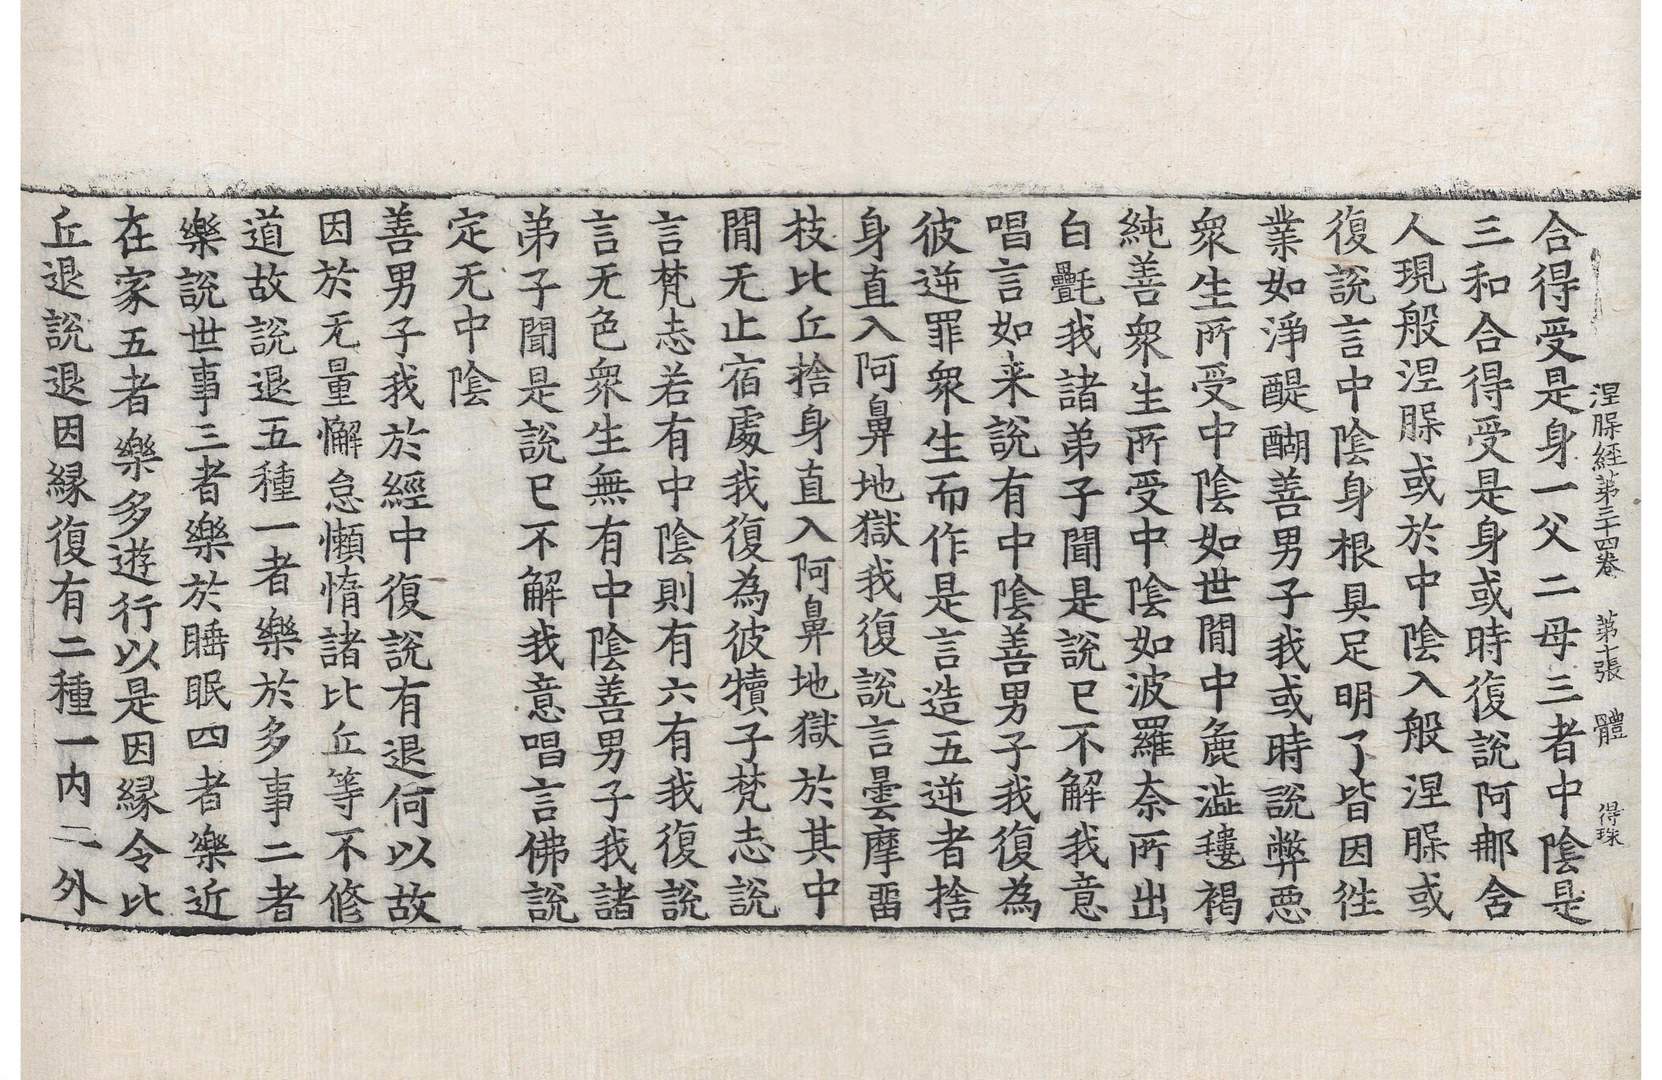 涅槃経第三十四卷 第十張 體 得珠
合得受是身一父二母三者中陰是
三和合得受是身或時復說阿那舍
人現般涅槃或於中陰入般涅槃或
復說言中陰身根具足明了皆因往
業如淨醍醐善男子我或時說弊惡
衆生所受中陰如世間中麁澁氀褐
純善衆生所受中陰如波羅奈所出
白㲲我諸弟子聞是說已不解我意
唱言如来說有中陰善男子我復為
彼逆罪衆生而作是言造五逆者捨
身直入阿鼻地獄我復說言曇摩留
枝比丘捨身直入阿鼻地獄於其中
間无止宿處我復為彼犢子梵志說
言梵志若有中陰則有六有我復說
言无色衆生無有中陰善男子我諸
弟子聞是說已不解我意唱言佛說
定无中陰
善男子我於經中復說有退何以故
因於无量懈怠懶惰諸比丘等不修
道故說退五種一者樂於多事二者
樂說世事三者樂於睡眠四者樂近
在家五者樂多遊行以是因縁令比
丘退說退因縁復有二種一内二外